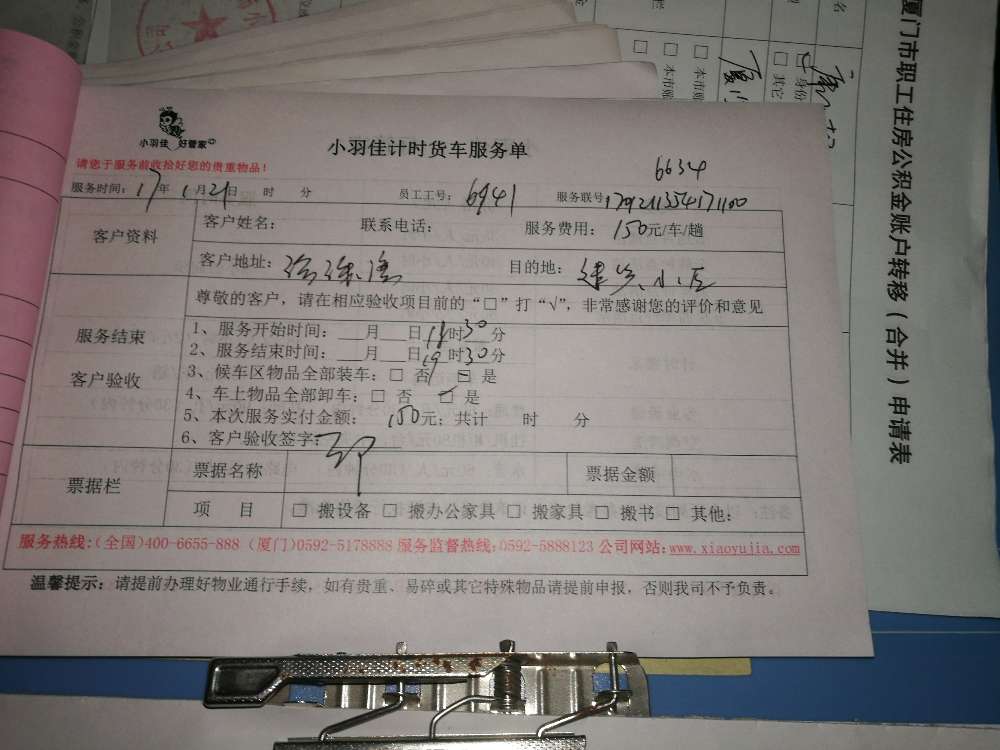 小羽佳 好管家
小羽佳计时货车服务单
请您于服务前收拾好您的贵重物品！
6634
服务时间：17年1月21日 时 分 员工工号：6941 服务联号：
客户资料
客户姓名： 联系电话： 服务费用：150元/车/趟
客户地址： 目的地：建兴小区
尊敬的客户，请在相应验收项目前的“□”打“√”，非常感谢您的评价和意见
服务结束
客户验收
1、服务开始时间：___月___日18时30分
2、服务结束时间：___月___日19时30分
3、候车区物品全部装车：□ 否 □ 是
4、车上物品全部卸车：□ 否 □ 是
5、本次服务实付金额：150元；共计 时 分
6、客户验收签字：
票据栏
票据名称 票据金额
项 目 □ 搬设备 □ 搬办公家具 □ 搬家具 □ 搬书 □ 其他：
服务热线：（全国）400-6655-888（厦门）0592-5178888 服务监督热线：0592-5888123 公司网站：www.xiaoyujia.com
温馨提示：请提前办理好物业通行手续，如有贵重、易碎或其它特殊物品请提前申报，否则我司不予负责。
厦门市职工住房公积金账户转移（合并）申请表
名
□ 身份
□ 其它
□ 本市
□ 本市